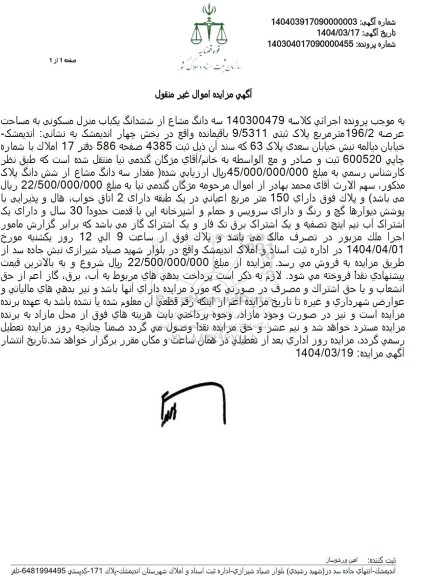 شماره آگهي: 140403917090000003
تاريخ آگهي: 1404/03/17
شماره پرونده: 140304017090000455
صفحه 1 از 1
آگهي مزايده اموال غير منقول
به موجب پرونده اجرائي کلاسه 140300479 سه دانگ مشاع از ششدانگ يکباب منزل مسکوني به مساحت
عرصه 196/2مترمربع پلاک ثبتي 9/5311 باقيمانده واقع در بخش چهار انديمشک به نشاني: انديمشک-
خيابان ديالمه نبش خيابان سعدي پلاک 63 که سند آن ذيل ثبت 4385 صفحه 586 دفتر 17 املاك با شماره
چاپي 600520 ثبت و صادر و مع الواسطه به خانم/آقاي مژگان گندمي نيا منتقل شده است که طبق نظر
کارشناس رسمي به مبلغ 45/000/000/000ريال ارزيابي شده( مقدار سه دانگ مشاع از شش دانگ پلاک
مذکور، سهم الارث آقاي محمد بهادر از اموال مرحومه مژگان گندمي نيا به مبلغ 22/500/000/000 ريال
مي باشد) و پلاک فوق داراي 150 متر مربع اعياني در يک طبقه داراي 2 اتاق خواب، هال و پذيرايي با
پوشش ديوارها گچ و رنگ و داراي سرويس و حمام و آشپزخانه اپن با قدمت حدوداً 30 سال و داراي يک
اشتراک آب نيم اينچ تصفيه و يک اشتراک برق تک فاز و يک اشتراک گاز مي باشد که برابر گزارش مامور
اجرا ملك مزبور در تصرف مالک مي باشد و پلاك فوق از ساعت 9 الي 12 روز يکشنبه مورخ
1404/04/01 در اداره ثبت اسناد و املاک انديمشک واقع در بلوار شهيد صياد شيرازي نبش جاده سد از
طريق مزايده به فروش مي رسد. مزايده از مبلغ 22/500/000/000 ريال شروع و به بالاترين قيمت
پيشنهادي نقداً فروخته مي شود. لازم به ذکر است پرداخت بدهي هاي مربوط به آب، برق، گاز اعم از حق
انشعاب و يا حق اشتراك و مصرف در صورتي که مورد مزايده داراي آنها باشد و نيز بدهي هاي مالياتي و
عوارض شهرداري و غيره تا تاريخ مزايده اعم از اينکه رقم قطعي آن معلوم شده يا نشده باشد به عهده برنده
مزايده است و نيز در صورت وجود مازاد، وجوه پرداختي بابت هزينه هاي فوق از محل مازاد به برنده
مزايده مسترد خواهد شد و نيم عشر و حق مزايده نقداً وصول مي گردد ضمناً چنانچه روز مزايده تعطيل
رسمي گردد، مزايده روز اداري بعد از تعطيلي در همان ساعت و مکان مقرر برگزار خواهد شد.تاريخ انتشار
آگهي مزايده: 1404/03/19
ثبت کننده:
انديمشك-انتهاي جاده سد دز(شهيد رشيدي) بلوار صياد شيرازي-اداره ثبت اسناد و املاك شهرستان انديمشك-پلاك 171-كدپستي 6481994495-تلفن